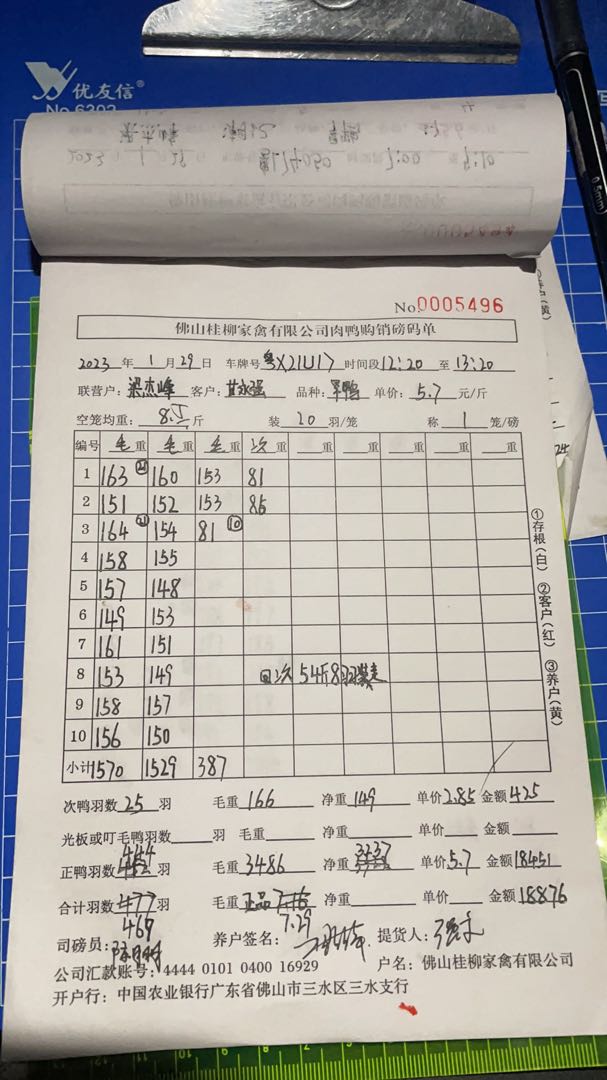 优友信®
No.6302
No.0005496
佛山桂柳家禽有限公司肉鸭购销磅码单
2023 年 1 月 29 日 车牌号 粤X21U17 时间段 12:20 至 13:20
联营户: 梁杰峰 客户: 甘永强 品种: 单价: 5.7 元/斤
空笼均重: 8.5 斤 装 20 羽/笼 称 1 笼/磅
编号 毛重 毛重 毛重 次重 重 重 重 重
1 163 ㉑ 160 153 81
2 151 152 153 85
3 164 ㉑ 154 81 ⑩
4 158 155
5 157 148
6 149 153
7 161 151
8 153 149 回次 54斤8羽
9 158 157
10 156 150
小计 1570 1529 387
次鸭羽数 25 羽 毛重 166 净重 149 单价 2.85 金额 425
光板或叮毛鸭羽数 羽 毛重 净重 单价 金额
444
正鸭羽数 452 羽 毛重 3486 净重 3237 单价 5.7 金额 18451
合计羽数 477 羽 毛重 正品 7.16 净重 单价 金额 18876
469 7.29
司磅员: 养户签名: 提货人:
公司汇款账号: 4444 0101 0400 16929 户名: 佛山桂柳家禽有限公司
开户行: 中国农业银行广东省佛山市三水区三水支行
①存根(白) ②客户(红) ③养户(黄)
0.5mm